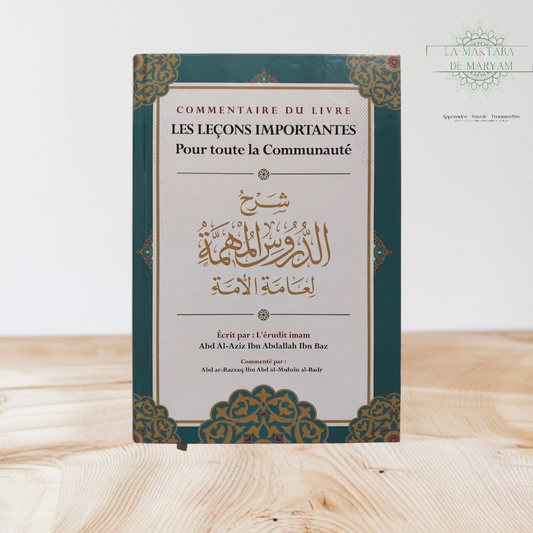 LA MAKTABA
DE MARYAM
Apprendre · Savoir · Transmettre
COMMENTAIRE DU LIVRE
LES LEÇONS IMPORTANTES
Pour toute la Communauté
شَرْحُ
الدُّرُوسِ المُهِمَّةِ
لِعَامَّةِ الأُمَّةِ
Écrit par : L'érudit imam
Abd Al-Aziz Ibn Abdallah Ibn Baz
Commenté par :
Abd ar-Razzaq Ibn Abd al-Muhsin al-Badr